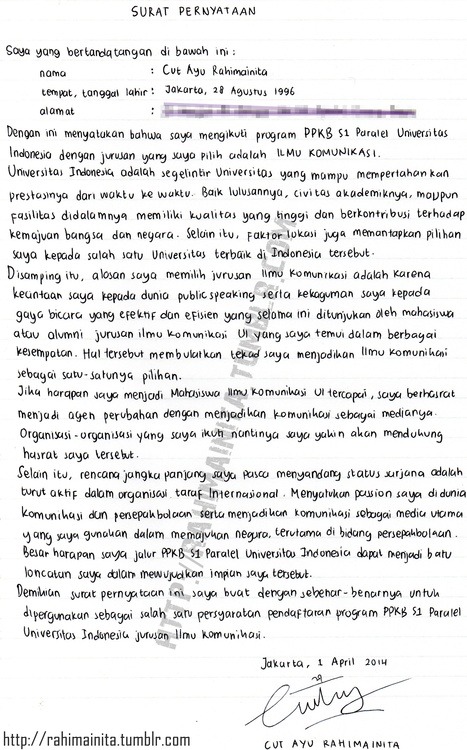 SURAT PERNYATAAN
Saya yang bertandatangan di bawah ini :
nama : Cut Ayu Rahimainita
tempat, tanggal lahir : Jakarta, 28 Agustus 1996
alamat :
Dengan ini menyatakan bahwa saya mengikuti program PPKB S1 Paralel Universitas
Indonesia dengan jurusan yang saya pilih adalah ILMU KOMUNIKASI.
Universitas Indonesia adalah segelintir Universitas yang mampu mempertahankan
prestasinya dari waktu ke waktu. Baik lulusannya, civitas akademiknya, maupun
fasilitas didalamnya memiliki kualitas yang tinggi dan berkontribusi terhadap
kemajuan bangsa dan negara. Selain itu, faktor lokasi juga memantapkan pilihan
saya kepada salah satu Universitas terbaik di Indonesia tersebut.
Disamping itu, alasan saya memilih jurusan Ilmu Komunikasi adalah karena
kecintaan saya kepada dunia public speaking serta kekaguman saya kepada
gaya bicara yang efektif dan efisien yang selama ini ditunjukan oleh mahasiswa
atau alumni jurusan ilmu komunikasi UI yang saya temui dalam berbagai
kesempatan. Hal tersebut membulatkan tekad saya menjadikan Ilmu Komunikasi
sebagai satu-satunya pilihan.
Jika harapan saya menjadi Mahasiswa Ilmu Komunikasi UI tercapai, saya berhasrat
menjadi agen perubahan dengan menjadikan komunikasi sebagai medianya.
Organisasi-organisasi yang saya ikuti nantinya saya yakin akan mendukung
hasrat saya tersebut.
Selain itu, rencana jangka panjang saya pasca menyandang status sarjana adalah
turut aktif dalam organisasi taraf Internasional. Menyatukan passion saya di dunia
komunikasi dan persepakbolaan serta menjadikan komunikasi sebagai media utama
yang saya gunakan dalam memajukan negara, terutama di bidang persepakbolaan.
Besar harapan saya jalur PPKB S1 Paralel Universitas Indonesia dapat menjadi batu
loncatan saya dalam mewujudkan impian saya tersebut.
Demikian surat pernyataan ini saya buat dengan sebenar-benarnya untuk
dipergunakan sebagai salah satu persyaratan pendaftaran program PPKB S1 Paralel
Universitas Indonesia jurusan Ilmu Komunikasi.
Jakarta, 1 April 2014
CUT AYU RAHIMAINITA
http://rahimainita.tumblr.com
HTTP://RAHIMAINITA.TUMBLR.COM